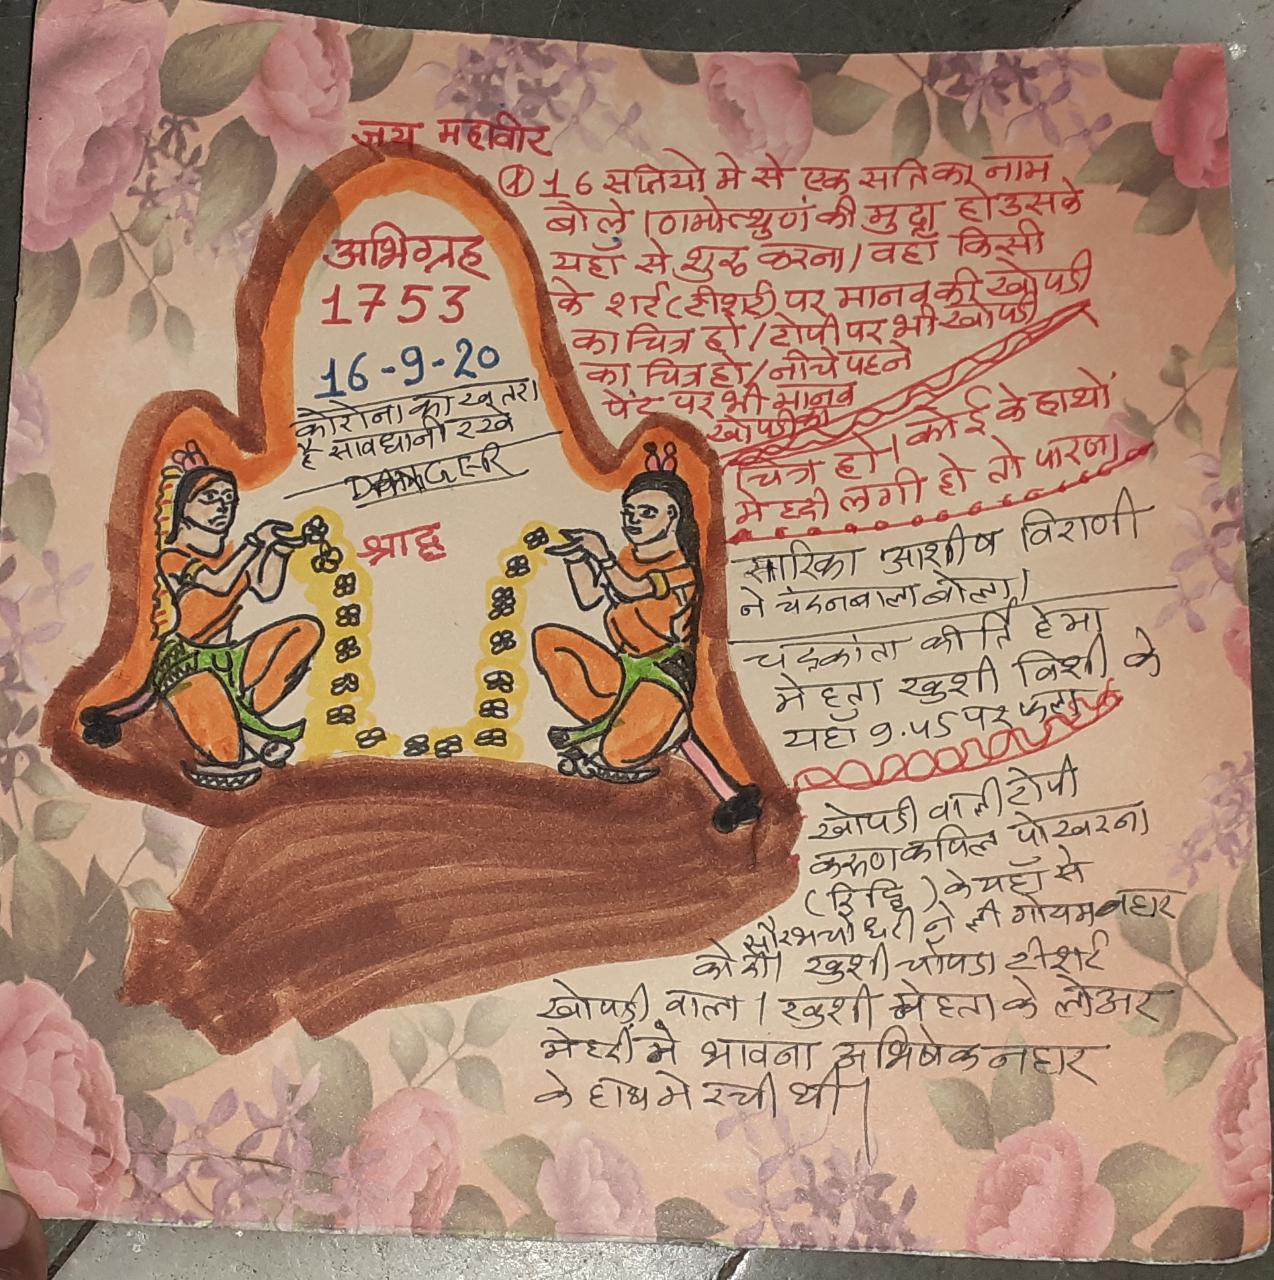 जय महावीर
अभिग्रह
1753
16-9-20
कोरोना का खतरा
है सावधानी रखे
DANGER
श्राद्ध
① 16 सतियो मे से एक सति का नाम
बोले। णमोत्थुणं की मुद्रा हो उसके
यहाँ से शुरू करना। वहाँ किसी
के शर्ट (टीशर्ट) पर मानव की खोपडी
का चित्र हो। टोपी पर भी खोपडी
का चित्र हो। नीचे पहने
पेंट पर भी मानव
खोपडी का
चित्र हो। कोई के हाथों
मेहदी लगी हो तो पारणा
सारिका आशीष विराणी
ने चंदनबाला बोला।
चंद्रकांता कीर्ति हेमा
मेहता खुशी विशी के
यहाँ 9.45 पर फला
खोपडी वाली टोपी
करूण कपिल पोखरना
(रिद्धि) के यहाँ से
सौरभ चौधरी ने ली गोयम नहार
को दी। खुशी चोपडा टीशर्ट
खोपडी वाला। खुशी मेहता के लोअर
मेहदी मे भावना अभिषेक नहार
के हाथ मे रची थी।